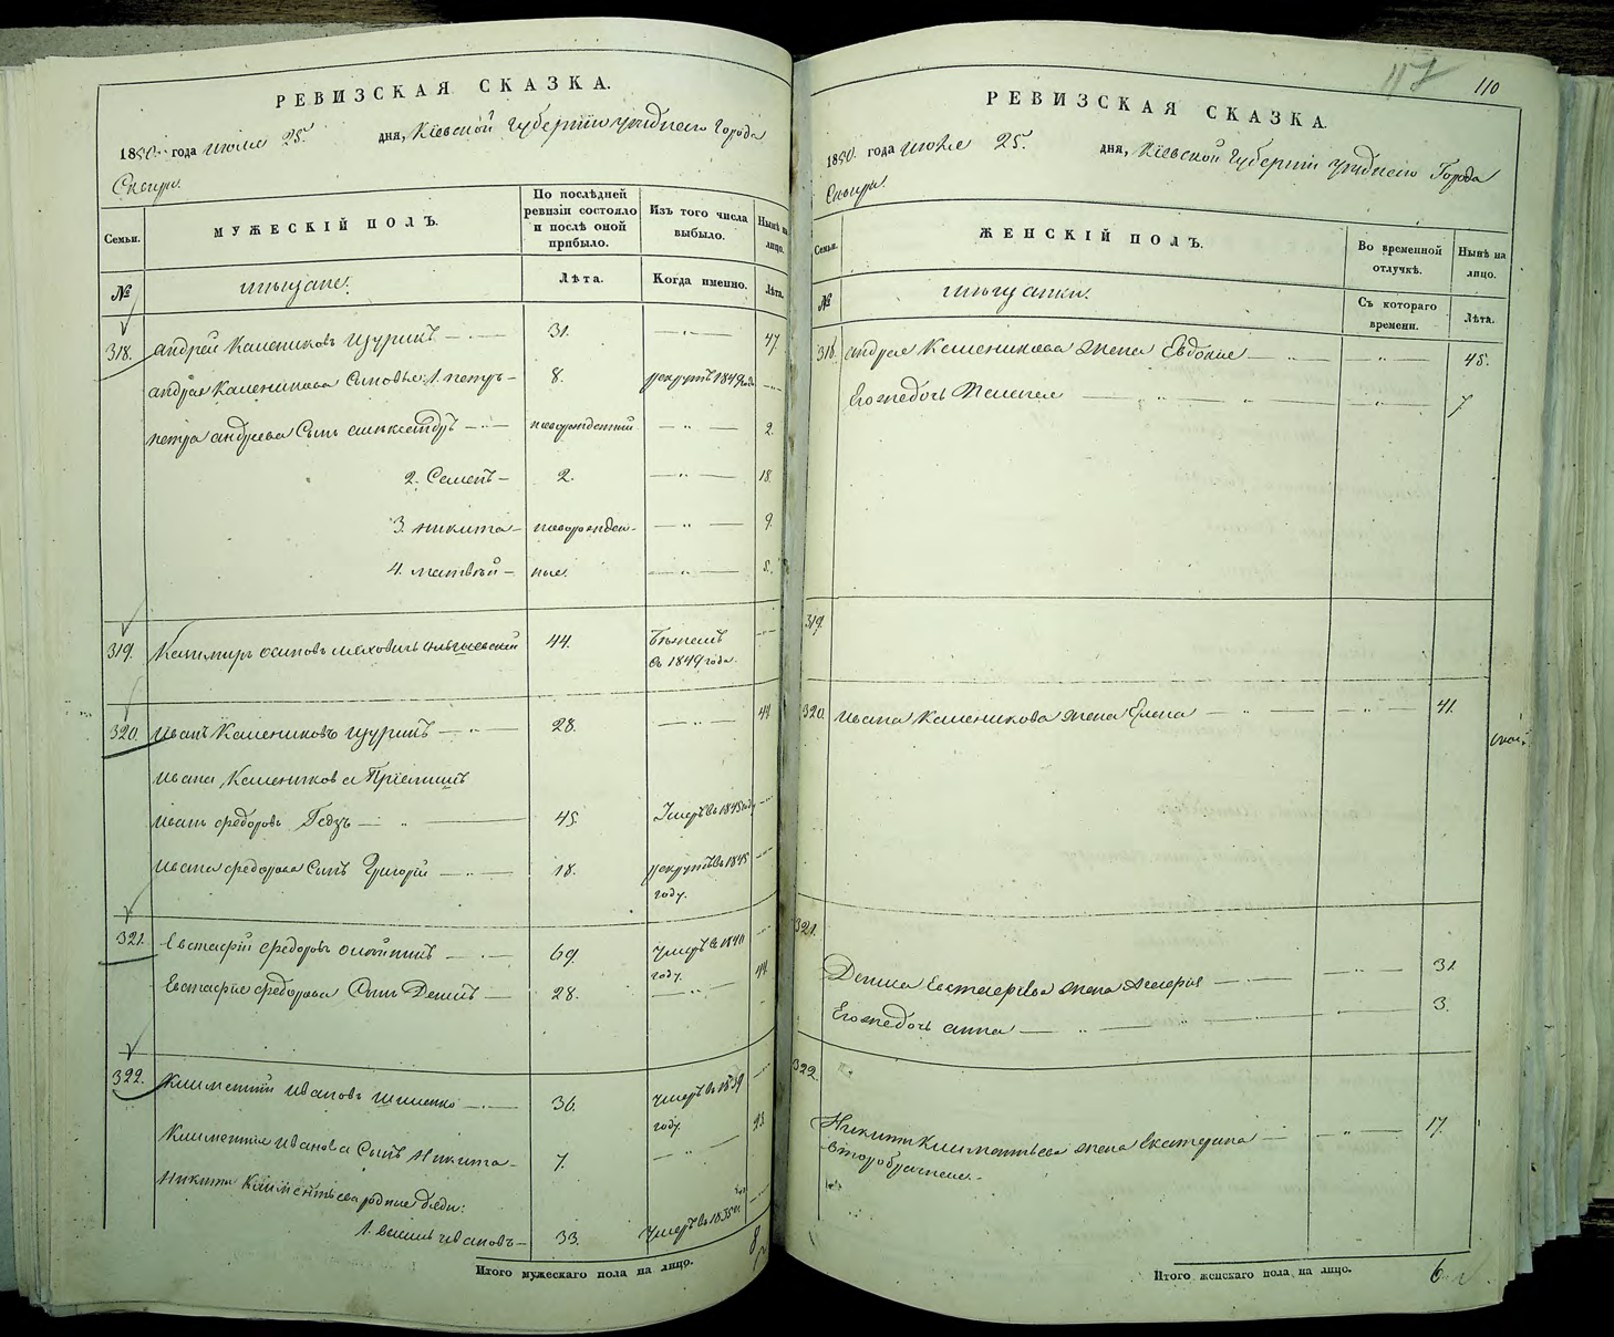 РЕВИЗСКАЯ СКАЗКА.
1850 года июля 25. дня, Кіевской Губерніи уѣзднаго Города
Сквиры.
Семьи.
МУЖЕСКІЙ ПОЛЪ.
По послѣдней ревизіи состояло и послѣ оной прибыло.
Изъ того числа выбыло.
Нынѣ на лицо.
№
мѣщане.
Лѣта.
Когда именно.
Лѣта.
318. Андрей Калениковъ Цурикъ 31. 47.
Андрея Каленикова Сыновья: 1. Петръ 8. рекрутъ 1849 года
Петра Андреева Сынъ Александръ новорожденный 2.
2. Семенъ 2. 18.
3. Никита новорожден- 9.
4. Матвѣй ные.
319. Казимиръ Осиповъ 44. Бѣжалъ
въ 1849 года.
320. Иванъ Калениковъ Цурикъ 28. 44.
Ивана Каленикова
Иванъ Федоровъ Гедзъ 45. Умеръ въ 1845 году
Ивана Федорова Сынъ Григорій 18. рекрутъ въ 1845
году.
321. Евстафій Федоровъ 69. Умеръ въ
году.
Евстафія Федорова Сынъ Денисъ 28. 44.
322. Климентій Ивановъ 36. Умеръ въ 1839
году.
Климентія Иванова Сынъ Никита 7. 23.
Никиты Климентьева родные дяди:
1. Ивановъ 33. Умеръ въ
Итого мужескаго пола на лицо. 8
117
110
РЕВИЗСКАЯ СКАЗКА.
1850. года июля 25. дня, Кіевской Губерніи уѣзднаго Города
Сквиры.
Семьи.
ЖЕНСКІЙ ПОЛЪ.
Во временной отлучкѣ.
Нынѣ на лицо.
№
мѣщанки.
Съ котораго времени.
Лѣта.
318. Андрея Каленикова жена Евдокія 45.
Его же дочь 7
319.
320. Ивана Каленикова жена Елена 41.
321.
Дениса Евстафіева жена 31.
Его же дочь Анна 3.
322.
Никиты Климентьева жена Екатерина 17.
второбрачная.
Итого женскаго пола на лицо. 6